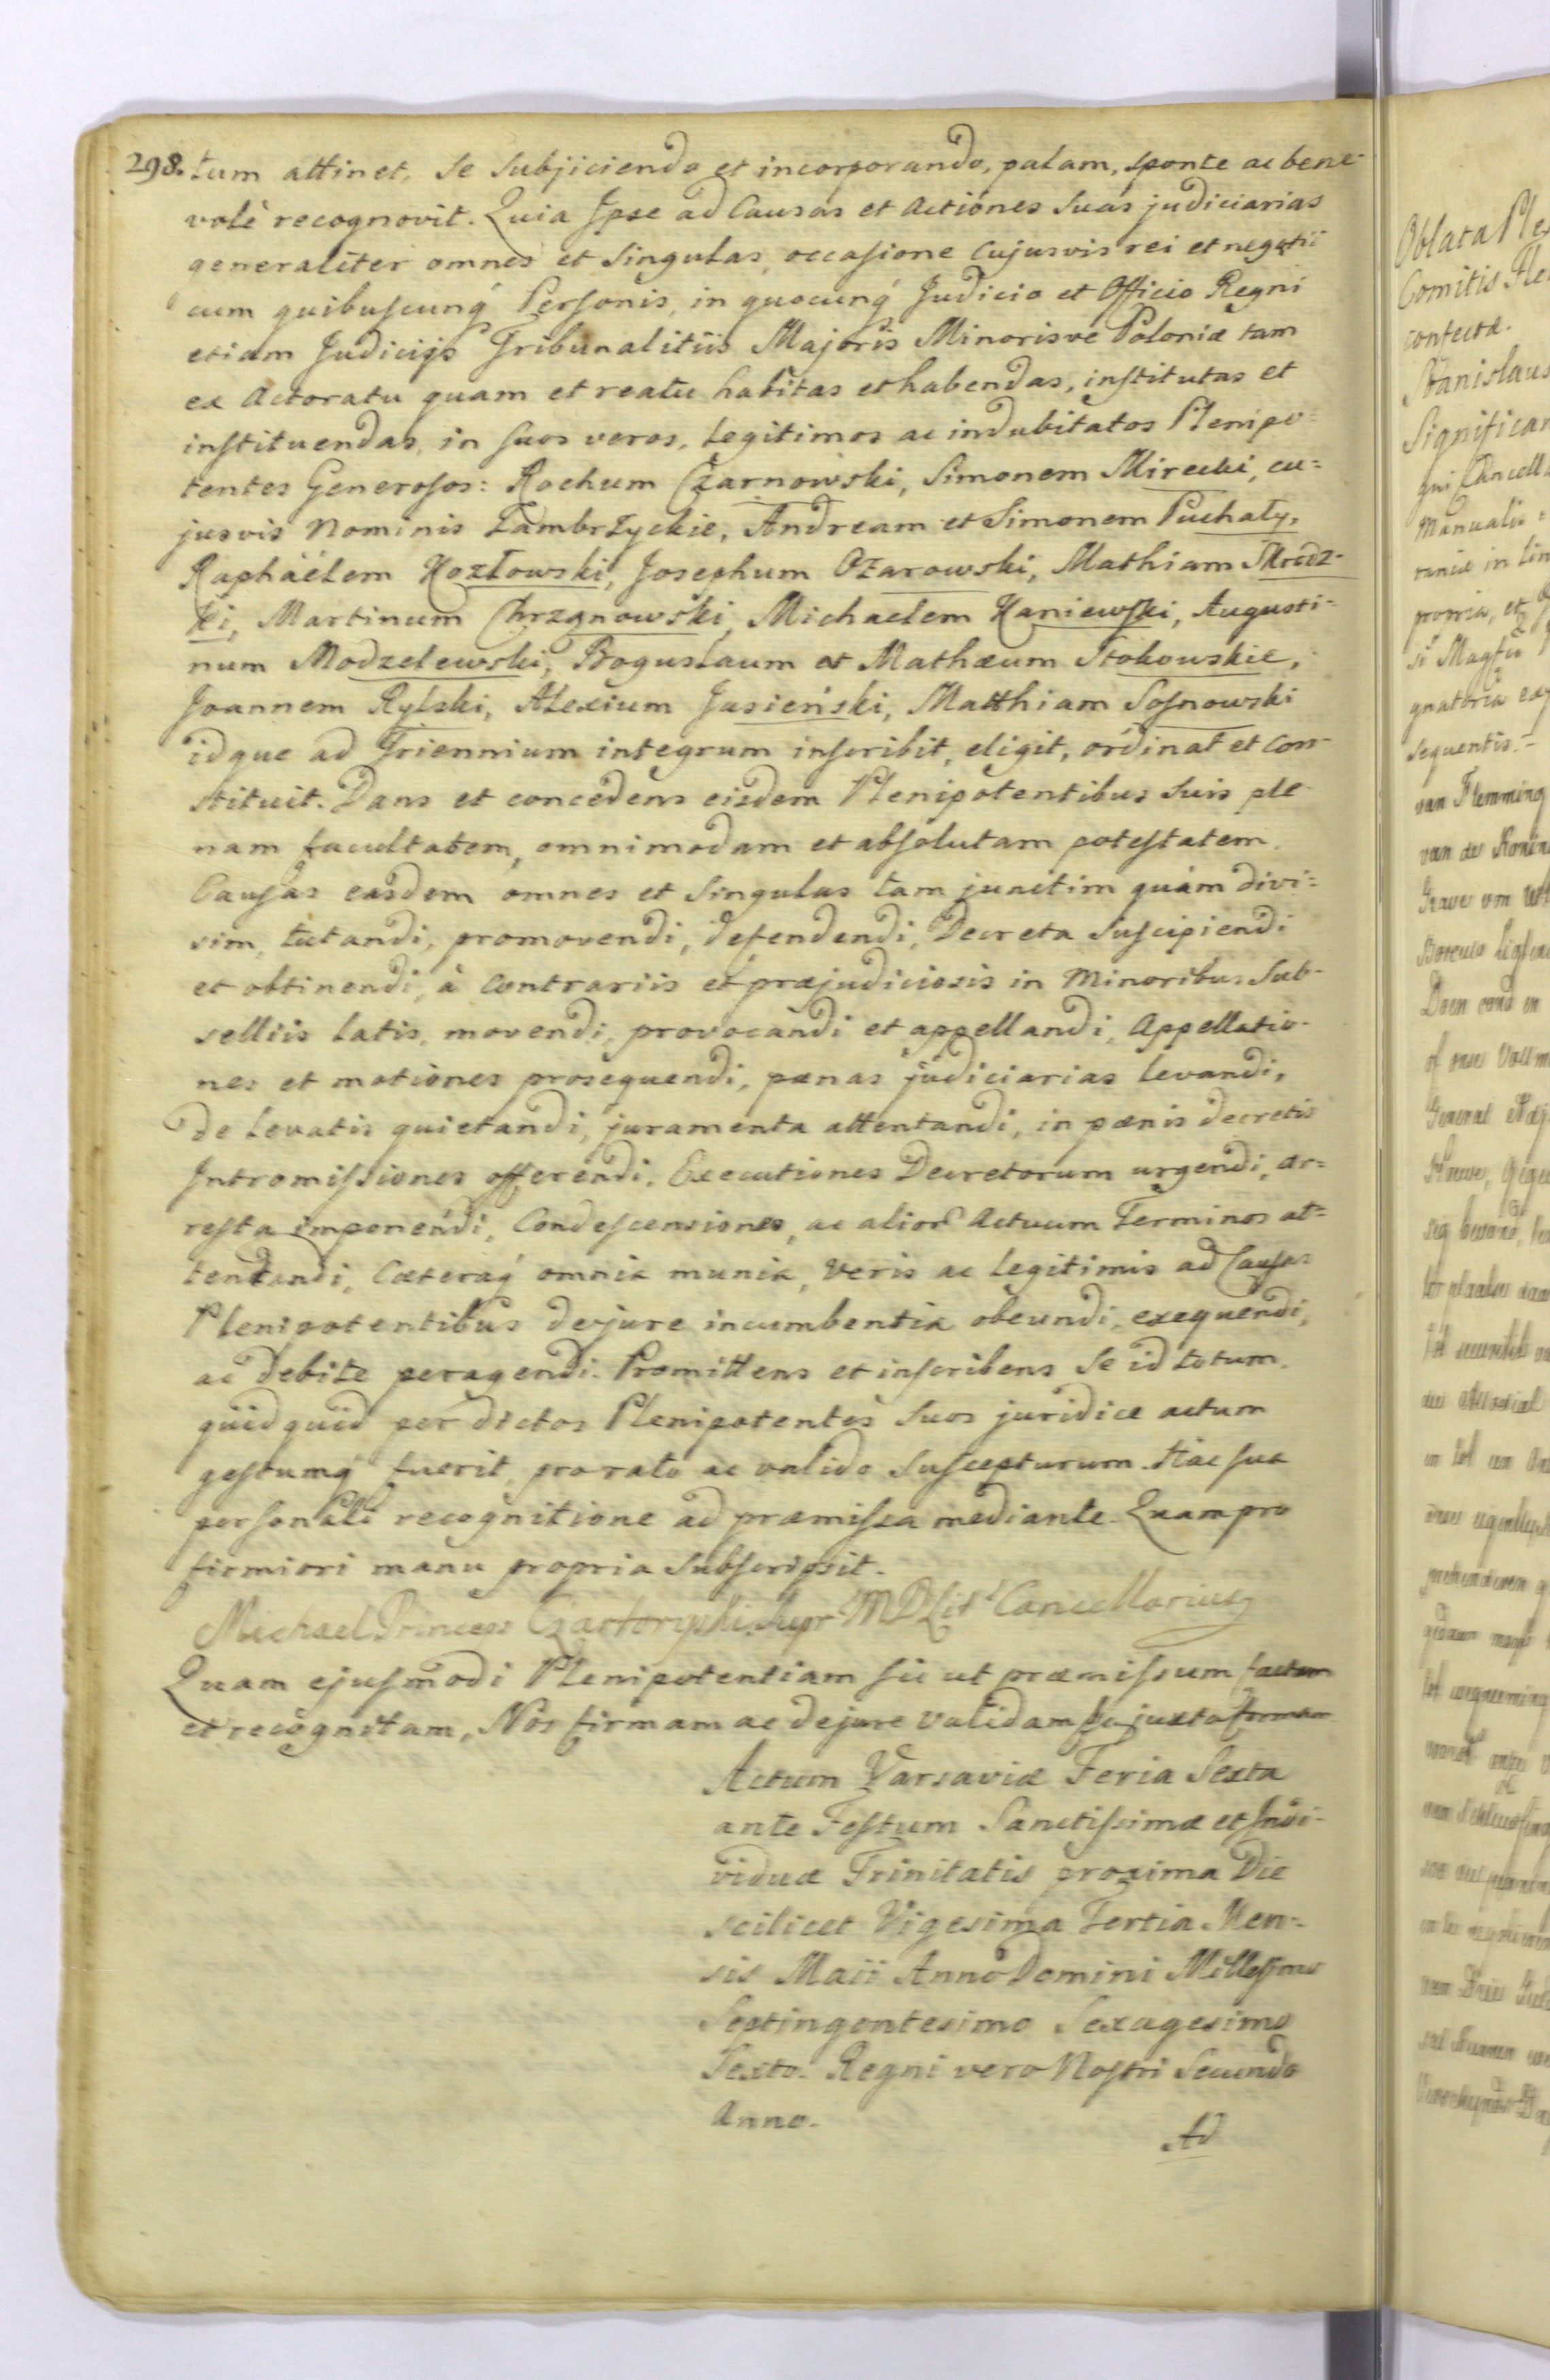 298. tum attinet, se subjiciendo et incorporando, palam, sponte ac bene-
volè recognovit. Quia Ipse ad Causas et Actiones Suas judiciarias
generaliter omnes et Singulas, occasione cujusvis rei et negotii
cum quibuscunq́ Personis, in quocunq́ Judicio et Officio Regni
etiam Judicijs Tribunalitiis Majoris Minorisve Poloniæ tam
ex Actoratu quam et reatu habitas et habendas, institutas et
instituendas, in suos veros, Legitimos ac indubitatos Plenipo-
tentes Generosos: Rochum Czarnowski, Simonem Mirecki, cu=
jusvis Nominis Zambrzyckie, Andream et Simonem Puchały,
Raphaëlem Kozłowski, Josephum Ożarowski, Mathiam Skrodz-
ki, Martinum Chrzanowski, Michaelem Kaniewski, Augusti-
num Modzelewski, Boguslaum et Mathæum Stokowskie,
Joannem Rylski, Alexium Jasieński, Matthiam Sosnowski
idque ad Triennium integrum inscribit, eligit, ordinat et con-
stituit. Dans et concedens eisdem Plenipotentibus Suis ple-
nam facultatem, omnimodam et absolutam potestatem.
Causas easdem omnes et Singulas tam junctim quàm divi=
sim, tutandi, promovendi, defendendi, Decreta suscipiendi
et obtinendi, à Contrariis et præjudiciosis in Minoribus Sub-
selliis Latis, movendi, provocandi et appellandi, Appellatio-
nes et motiones prosequendi, pænas judiciarias Levandi,
de Levatis quietandi, juramenta attentandi, in pænis decretis
Intromissiones offerendi, Executiones Decretorum urgendi, ar=
resta imponendi, Condescensiones, ac alior Actuum Terminos at=
tentandi, Cæteraq́ omnia munia, Veris ac Legitimis ad Causas
Plenipotentibus dejure incumbentia obeundi, exequendi,
ac debite peragendi. Promittens et inscribens Se id totum
quidquid per dictos Plenipotentes Suos juridice actum
gestumq́ fuerit, pro rato ac valido Suscepturum. Hac sua
personali recognitione ad præmissa mediante. Quam pro
firmiori manu propria subscripsit.
Michael Princeps Czartoryski Supr M D Lit Cancellarius
Quam ejusmodi Plenipotentiam sic ut præmissum factam
et recognitam, Nos firmam ac dejure validam juxta formam
Actum Varsaviæ Feria Sexta
ante Festum Sanctissimæ et Indi-
viduæ Trinitatis proxima Die
scilicet Vigesima Tertia Men-
sis Maii Anno Domini Millesimo
Septingentesimo Sexagesimo
Sexto. Regni vero Nostri Secundo
Anno.
Ad
Oblata
Comitis
contectæ.
Stanislaus
qui
Manualis
propria, et
sequentis.
van Flemming